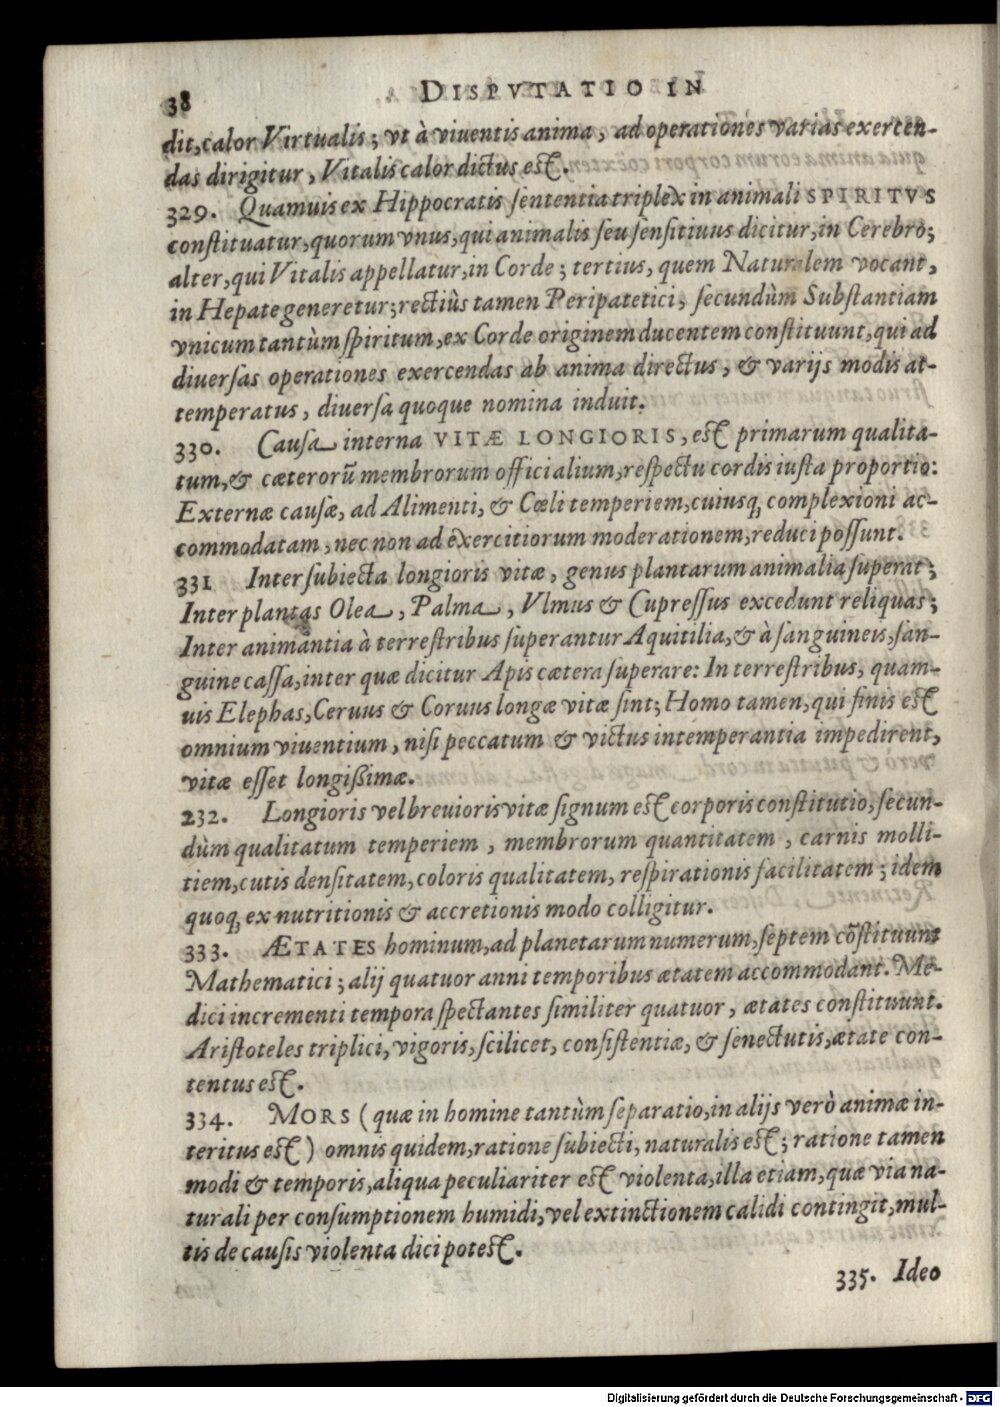 38 DISPVTATIO IN
dit, calor Virtualis; vt à viuentis anima, ad operationes varias exercen-
das dirigitur, Vitalis calor dictus est.
329. Quamuis ex Hippocratis sententia triplex in animali SPIRITVS
constituatur, quorum vnus, qui animalis seu sensitiuus dicitur, in Cerebro;
alter, qui Vitalis appellatur, in Corde; tertius, quem Naturalem vocant,
in Hepate generetur; rectiùs tamen Peripatetici, secundùm Substantiam
vnicum tantùm spiritum, ex Corde originem ducentem constituunt, qui ad
diuersas operationes exercendas ab anima directus, & varijs modis at-
temperatus, diuersa quoque nomina induit.
330. Causa interna VITÆ LONGIORIS, est primarum qualita-
tum, & cæterorũ membrorum officialium, respectu cordis iusta proportio:
Externæ causæ, ad Alimenti, & Cœli temperiem, cuiusq; complexioni ac-
commodatam, nec non ad exercitiorum moderationem, reduci possunt.
331 Inter subiecta longioris vitæ, genus plantarum animalia superat;
Inter plantas Olea, Palma, Vlmus & Cupressus excedunt reliquas;
Inter animantia à terrestribus superantur Aquitilia, & à sanguineis, san-
guine cassa, inter quæ dicitur Apis cætera superare: In terrestribus, quam-
uis Elephas, Ceruus & Coruus longæ vitæ sint; Homo tamen, qui finis est
omnium viuentium, nisi peccatum & victus intemperantia impedirent,
vitæ esset longißimæ.
232. Longioris vel breuioris vitæ signum est corporis constitutio, secun-
dùm qualitatum temperiem, membrorum quantitatem, carnis molli-
tiem, cutis densitatem, coloris qualitatem, respirationis facilitatem; idem
quoq; ex nutritionis & accretionis modo colligitur.
333. ÆTATES hominum, ad planetarum numerum, septem cõstituunt
Mathematici; alij quatuor anni temporibus ætatem accommodant. Me-
dici incrementi tempora spectantes similiter quatuor, ætates constituunt.
Aristoteles triplici, vigoris, scilicet, consistentiæ, & senectutis, ætate con-
tentus est.
334. MORS (quæ in homine tantùm separatio, in alijs verò animæ in-
teritus est) omnis quidem, ratione subiecti, naturalis est; ratione tamen
modi & temporis, aliqua peculiariter est violenta, illa etiam, quæ via na-
turali per consumptionem humidi, vel extinctionem calidi contingit, mul-
tis de causis violenta dici potest.
335. Ideo
Digitalisierung gefördert durch die Deutsche Forschungsgemeinschaft - DFG